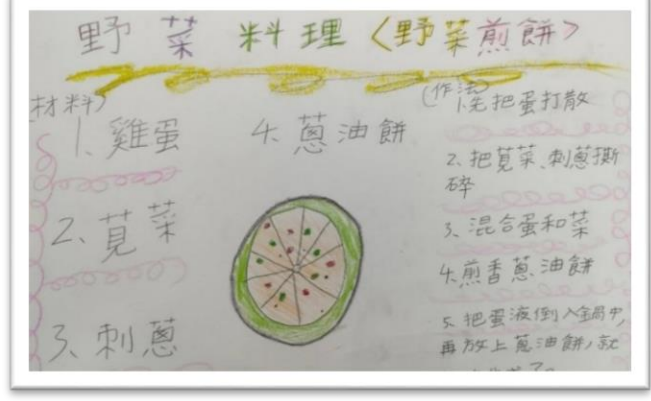 野菜料理<野菜煎餅>
(材料)
1、雞蛋
2、莧菜
3、刺蔥
4、蔥油餅
(作法)
1、先把蛋打散
2、把莧菜、刺蔥撕
碎
3、混合蛋和菜
4、煎香蔥油餅
5、把蛋液倒入鍋中,
再放上蔥油餅,就